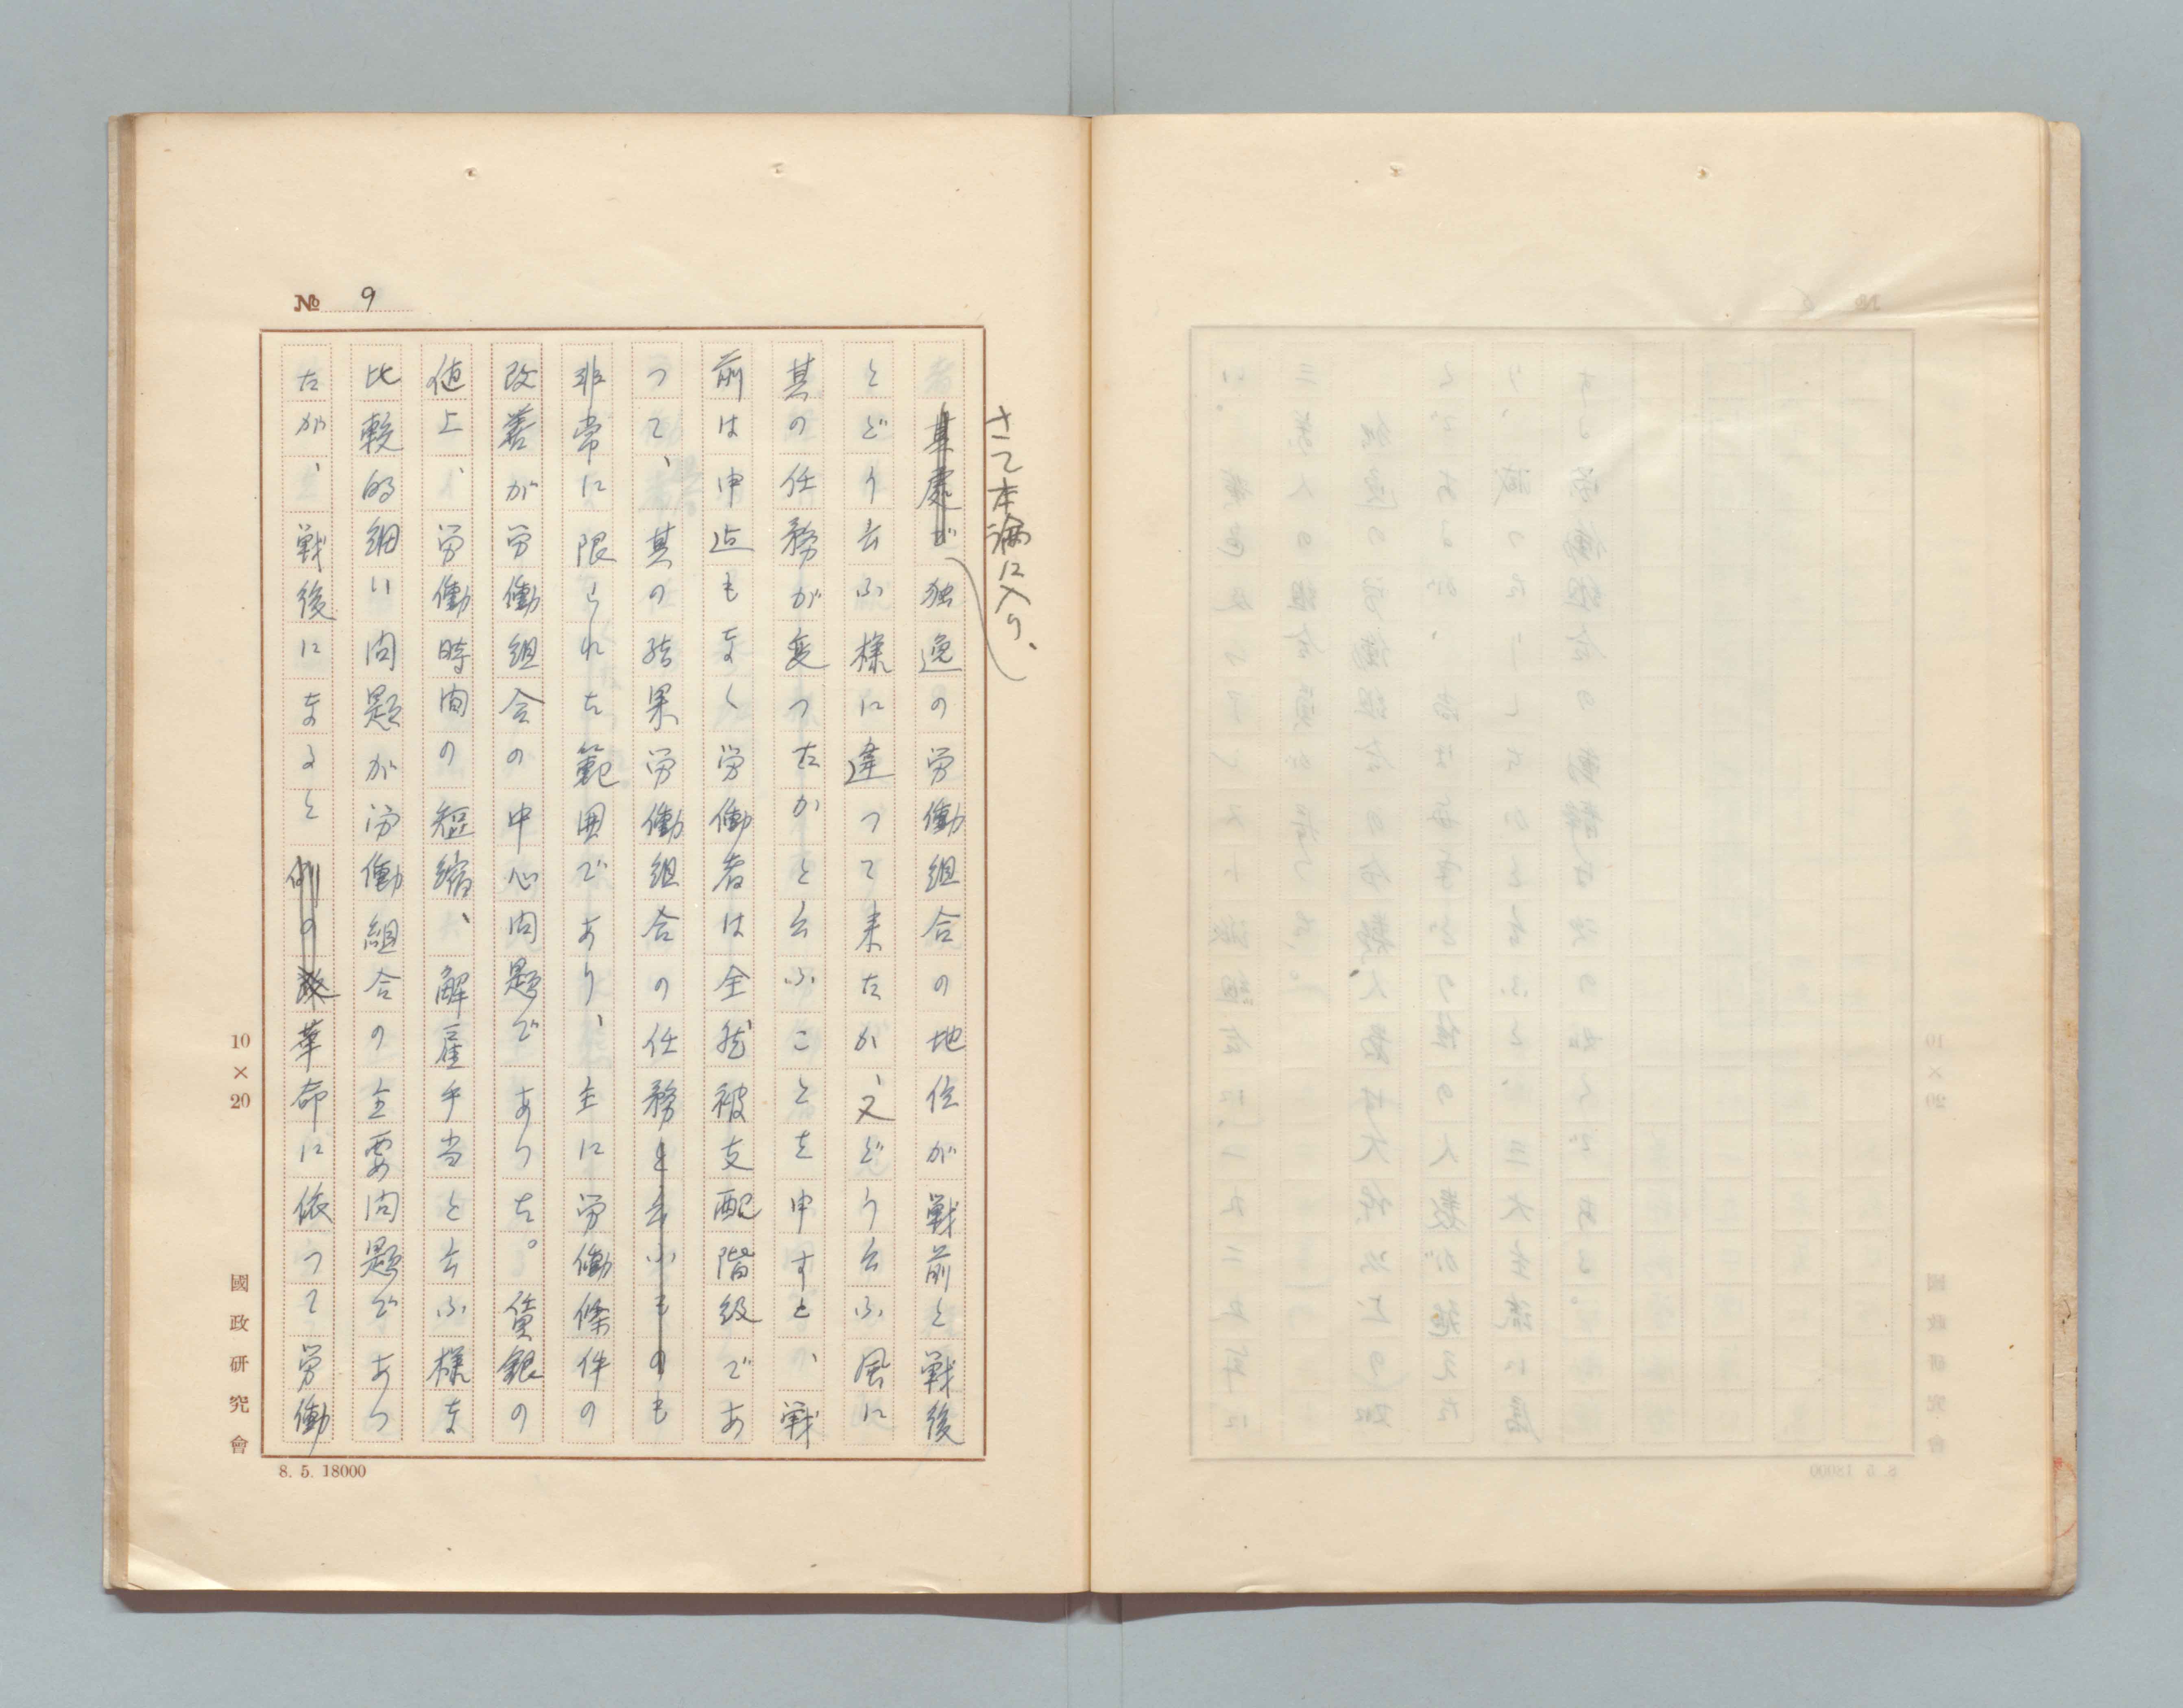 № 9
さて本論に入り、
其處が独逸の労働組合の地位が戦前と戦後
とどう云ふ様に違つて来たか、又どう云ふ風に
其の任務が変つたかと云ふことを申すと、戦
前は申迄もなく労働者は全然被支配階級であ
つて、其の結果労働組合の任務と云ふものも
非常に限られた範囲であり、主に労働條件の
改善が労働組合の中心問題であつた。賃銀の
値上、労働時間の短縮、解雇手当と云ふ様な
比較的細い問題が労働組合の主要問題であつ
たが、戦後になると例の革命に依つて労働
10×20
國政研究會
8. 5. 18000